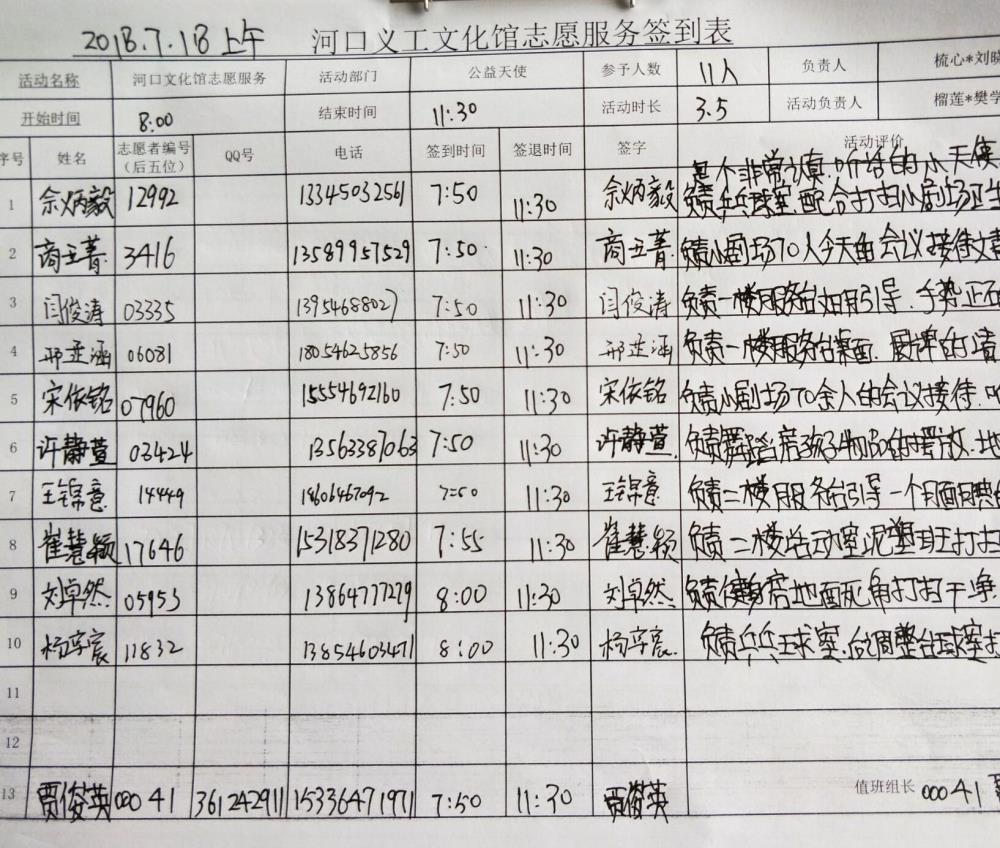 2018.7.18上午 河口义工文化馆志愿服务签到表
活动名称 河口文化馆志愿服务 活动部门 公益天使 参予人数 11人 负责人 梳心*刘晓
开始时间 8:00 结束时间 11:30 活动时长 3.5 活动负责人 榴莲*樊学
序号 姓名 志愿者编号（后五位） QQ号 电话 签到时间 签退时间 签字 活动评价
每个非常认真.听话的小天使
1 佘炳毅 12992 13345032561 7:50 11:30 佘炳毅 负责乒乓球室.配合打扫小剧场卫生
2 商立菁 3416 13589957529 7:50 11:30 商立菁 负责小剧场70人今天的会议接待
3 闫俊涛 03335 13954688027 7:50 11:30 闫俊涛 负责一楼服务台 引导.手势正
4 邢芷涵 06081 18054625856 7:50 11:30 邢芷涵 负责一楼服务台桌面.展牌的
5 宋依铭 07960 15554692160 7:50 11:30 宋依铭 负责小剧场70余人的会议接待.
6 许静萱 03424 13563387063 7:50 11:30 许静萱 负责舞蹈房孩子物品的摆放.地
7 王锦意 14449 18606467092 7:50 11:30 王锦意 负责二楼服务台引导一个月面
8 崔慧颖 17646 15318371280 7:55 11:30 崔慧颖 负责二楼活动室泥塑班打扫
9 刘卓然 05953 13864777279 8:00 11:30 刘卓然 负责健身房地面死角打扫干净.
10 杨淳宸 11832 13854603471 8:00 11:30 杨淳宸 负责乒乓球室.台调整台球案
11
12
13 贾俊英 00041 361242911 15336471971 7:50 11:30 贾俊英 值班组长 00041